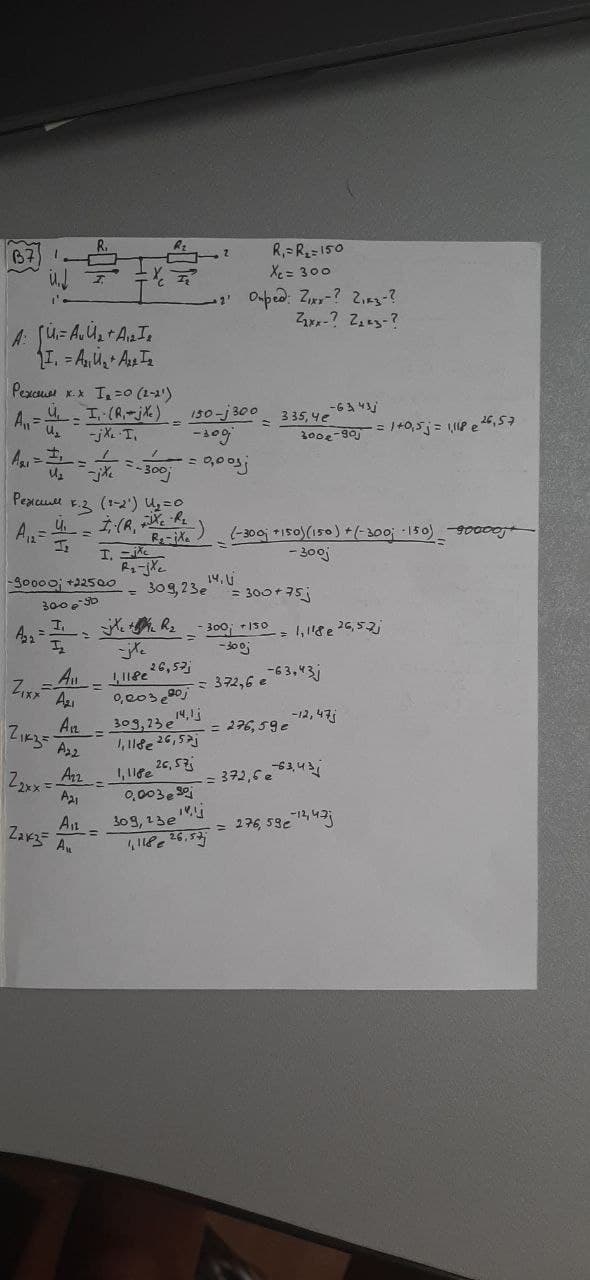 В7 1 R₁ R₂ 2 R₁=R₂=150
U̇₁↓ I₁ Xc I₂ Xc = 300
1' 2' Опред: Z₁хх-? Z₁кз-?
Z₂хх-? Z₂кз-?
A: {U̇₁=A₁₁U̇₂+A₁₂I₂
I₁=A₂₁U̇₂+A₂₂I₂
Режим х.х I₂=0 (2-2')
A₁₁= U̇₁/U₂ = I₁·(R₁-jXc)/-jXc·I₁ = 150-j300/-300j = 335,4e^-63,43j/300e^-90j = 1+0,5j = 1,118e^26,57
A₂₁= I₁/U₂ = 1/-jXc = 1/-300j = 0,003j
Режим к.з (2-2') U₂=0
A₁₂= U̇₁/I₂ = I₁·(R₁+ -jXc·R₂/R₂-jXc)/I₁ -jXc/R₂-jXc = (-300j+150)(150)+(-300j·150)/-300j = 90000j+
-90000j+22500/300e^-90 = 309,23e^14,1j = 300+75j
A₂₂= I₁/I₂ = -jXc + R₂/-jXc = -300j+150/-300j = 1,118e^26,57j
Z₁хх= A₁₁/A₂₁ = 1,118e^26,57j/0,003e^90j = 372,6e^-63,43j
Z₁кз= A₁₂/A₂₂ = 309,23e^14,1j/1,118e^26,57j = 276,59e^-12,47j
Z₂хх= A₂₂/A₂₁ = 1,118e^26,57j/0,003e^90j = 372,6e^-63,43j
Z₂кз= A₁₂/A₁₁ = 309,23e^14,1j/1,118e^26,57j = 276,59e^-12,47j